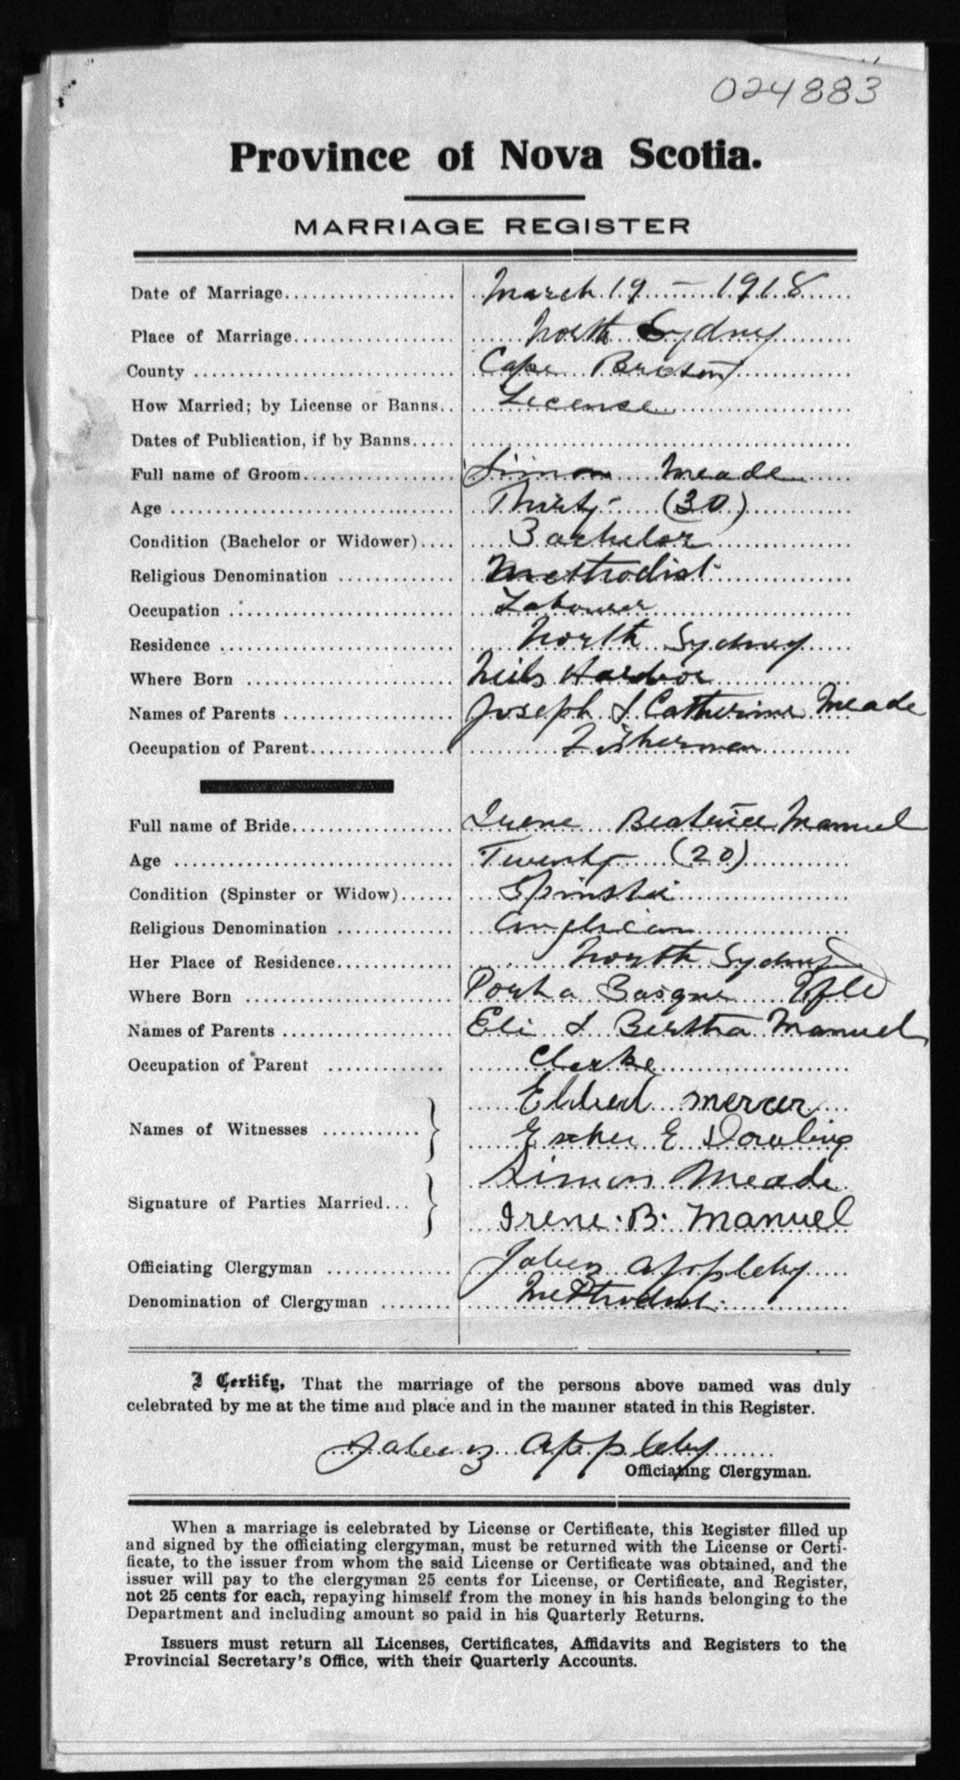 024883
Province of Nova Scotia.
MARRIAGE REGISTER
Date of Marriage................... March 19 - 1918
Place of Marriage.................. North Sydney
County ............................. Cape Breton
How Married; by License or Banns.. License
Dates of Publication, if by Banns.....
Full name of Groom................. Simon Meade
Age ............................... Thirty - (30)
Condition (Bachelor or Widower).... Bachelor
Religious Denomination ............ Methodist
Occupation ........................ Labourer
Residence ......................... North Sydney
Where Born ........................ Neils Harbor
Names of Parents .................. Joseph & Catherine Meade
Occupation of Parent............... Fisherman
Full name of Bride................. Irene Beatrice Manuel
Age ............................... Twenty (20)
Condition (Spinster or Widow)...... Spinster
Religious Denomination ............ Anglican
Her Place of Residence............. North Sydney
Where Born ........................ Port a Basque Nfld
Names of Parents .................. Eli & Bertha Manuel
Occupation of Parent ............. Clerke
Names of Witnesses ........... } Eldred Mercer
E Dowling
Signature of Parties Married... } Simon Meade
Irene. B. Manuel
Officiating Clergyman .............. Jabez Appleby
Denomination of Clergyman ........ Methodist
I Certify, That the marriage of the persons above named was duly
celebrated by me at the time and place and in the manner stated in this Register.
Jabez Appleby
Officiating Clergyman.
When a marriage is celebrated by License or Certificate, this Register filled up
and signed by the officiating clergyman, must be returned with the License or Certi-
ficate, to the issuer from whom the said License or Certificate was obtained, and the
issuer will pay to the clergyman 25 cents for License, or Certificate, and Register,
not 25 cents for each, repaying himself from the money in his hands belonging to the
Department and including amount so paid in his Quarterly Returns.
Issuers must return all Licenses, Certificates, Affidavits and Registers to the
Provincial Secretary's Office, with their Quarterly Accounts.